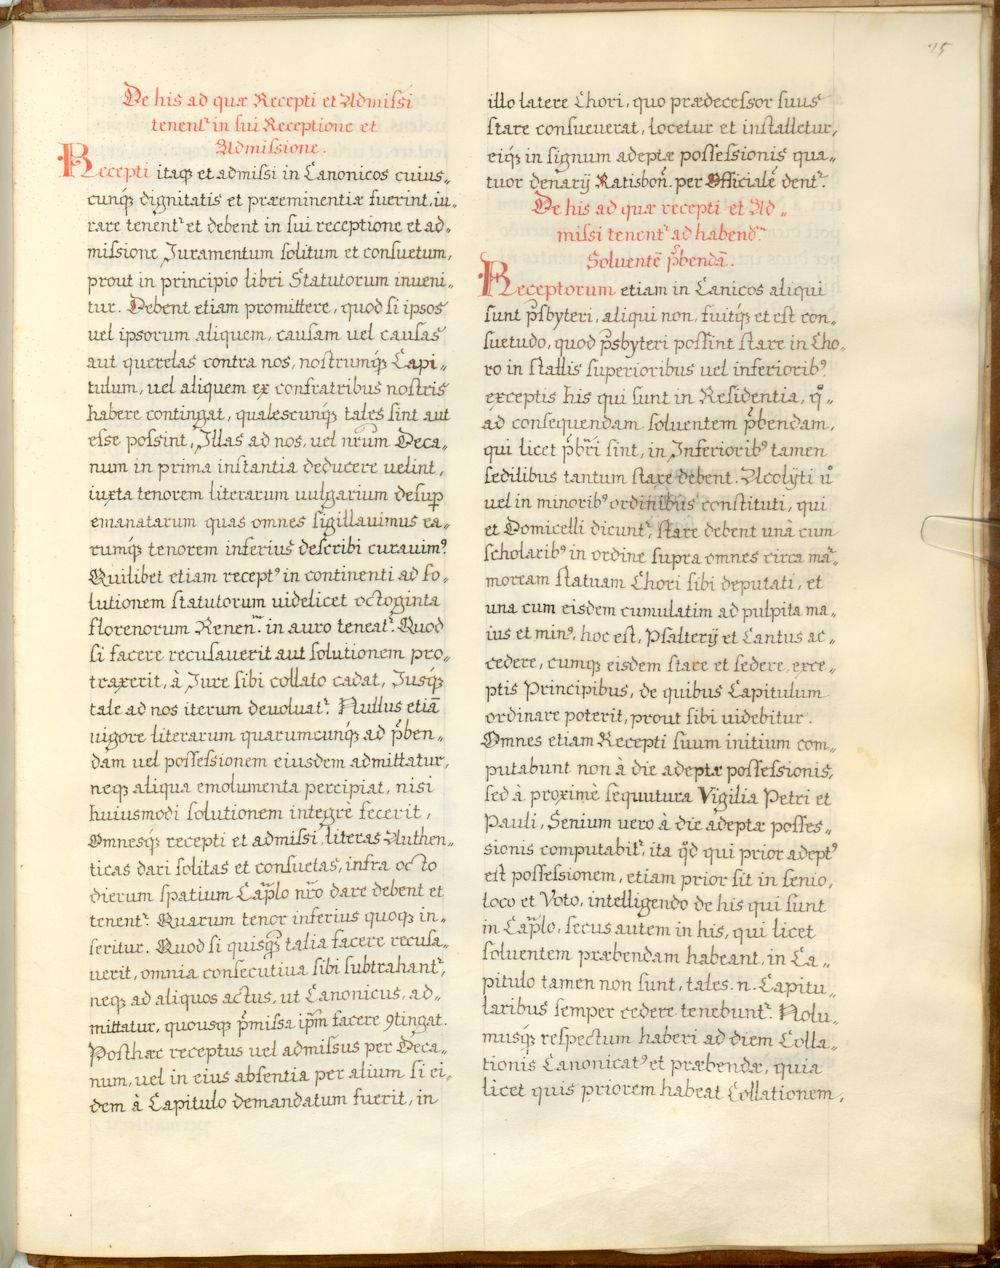 25
De his ad quæ Recepti et Admissi
tenent᷑ in sui Receptione et
Admissione.
Recepti itaqꝫ et admissi in Canonicos cuius„
cunqꝫ dignitatis et præeminentiæ fuerint, iu„
rare tenent᷑ et debent in sui receptione et ad„
missione Juramentum solitum et consuetum,
prout in principio libri Statutorum inveni„
tur. Debent etiam promittere, quod si ipsos
uel ipsorum aliquem, causam uel causas
aut querelas contra nos, nostrumqꝫ Capi„
tulum, uel aliquem ex confratribus nostris
habere contingat, qualescunqꝫ tales sint aut
esse possint, Illas ad nos, uel nr̃um Deca„
num in prima instantia deducere uelint,
iuxta tenorem literarum uulgarium desuꝑ
emanatarum quas omnes sigillauimus ea„
rumqꝫ tenorem inferius describi curauimꝰ.
Quilibet etiam receptꝰ in continenti ad so„
lutionem statutorum uidelicet octoginta
florenorum Renen̄. in auro teneat᷑. Quod
si facere recusauerit aut solutionem pro„
traxerit, à Jure sibi collato cadat, Jusqꝫ
tale ad nos iterum deuoluat᷑. Nullus etiā
uigore literarum quarumcunqꝫ ad p̃ben„
dam uel possessionem eiusdem admittatur,
neqꝫ aliqua emolumenta percipiat, nisi
huiusmodi solutionem integrè fecerit,
Omnesqꝫ recepti et admissi, literas Authen„
ticas dari solitas et consuetas, infra octo
dierum spatium Cap̃lo nr̃o dare debent et
tenent᷑. Quarum tenor inferius quoqꝫ in„
seritur. Quod si quisqꝫ talia facere recusa„
uerit, omnia consecutiua sibi subtrahant᷑,
neqꝫ ad aliquos actus, ut Canonicus, ad„
mittatur, quousqꝫ p̃missa ip̃m facere ꝯtingat.
Posthæc receptus uel admissus per Deca„
num, uel in eius absentia per alium si ei„
dem à Capitulo demandatum fuerit, in
illo latere Chori, quo prædecessor suus
stare consueuerat, locetur et installetur,
eiqꝫ in signum adeptæ possessionis qua„
tuor denarij Ratisbon̄. per Officialē dent᷑.
De his ad quæ recepti et Ad„
missi tenent᷑ ad habend᷑.
Soluentē p̃bendā.
Receptorum etiam in Canicos aliqui
sunt p̃sbyteri, aliqui non, fuitqꝫ et est con„
suetudo, quod p̃sbyteri possint stare in Cho„
ro in stallis superioribus uel inferioribꝰ.
exceptis his qui sunt in Residentia, qͦ„
ad consequendam soluentem p̃bendam,
qui licet p̃bri̅ sint, in Inferioribꝰ tamen
sedilibus tantum stare debent. Acolÿti uͦ
uel in minoribꝰ ordinibus constituti, qui
et Domicelli dicunt᷑, stare debent unà cum
scholaribꝰ in ordine supra omnes circa mar̃„
moream statuam Chori sibi deputati, et
una cum eisdem cumulatim ad pulpita ma„
ius et minꝰ, hoc est, Psalterij et Cantus ac„
cedere, cumqꝫ eisdem stare et sedere, exce„
ptis Principibus, de quibus Capitulum
ordinare poterit, prout sibi uidebitur.
Omnes etiam Recepti suum initium com„
putabunt non à die adeptæ possessionis,
sed à proximè sequutura Vigilia Petri et
Pauli, Senium uero à die adeptæ posses„
sionis computabit᷑, ita q̊d qui prior adeptꝰ
est possessionem, etiam prior sit in senio,
loco et Voto, intelligendo de his qui sunt
in Cap̃lo, secus autem in his, qui licet
soluentem præbendam habeant, in Ca„
pitulo tamen non sunt, tales .n. Capitu„
laribus semper cedere tenebunt᷑. Nolu„
musqꝫ respectum haberi ad diem Colla„
tionis Canonicatꝰ et præbendæ, quia
licet quis priorem habeat Collationem,